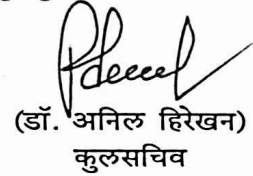 (डॉ. अनिल हिरेखन)
कुलसचिव